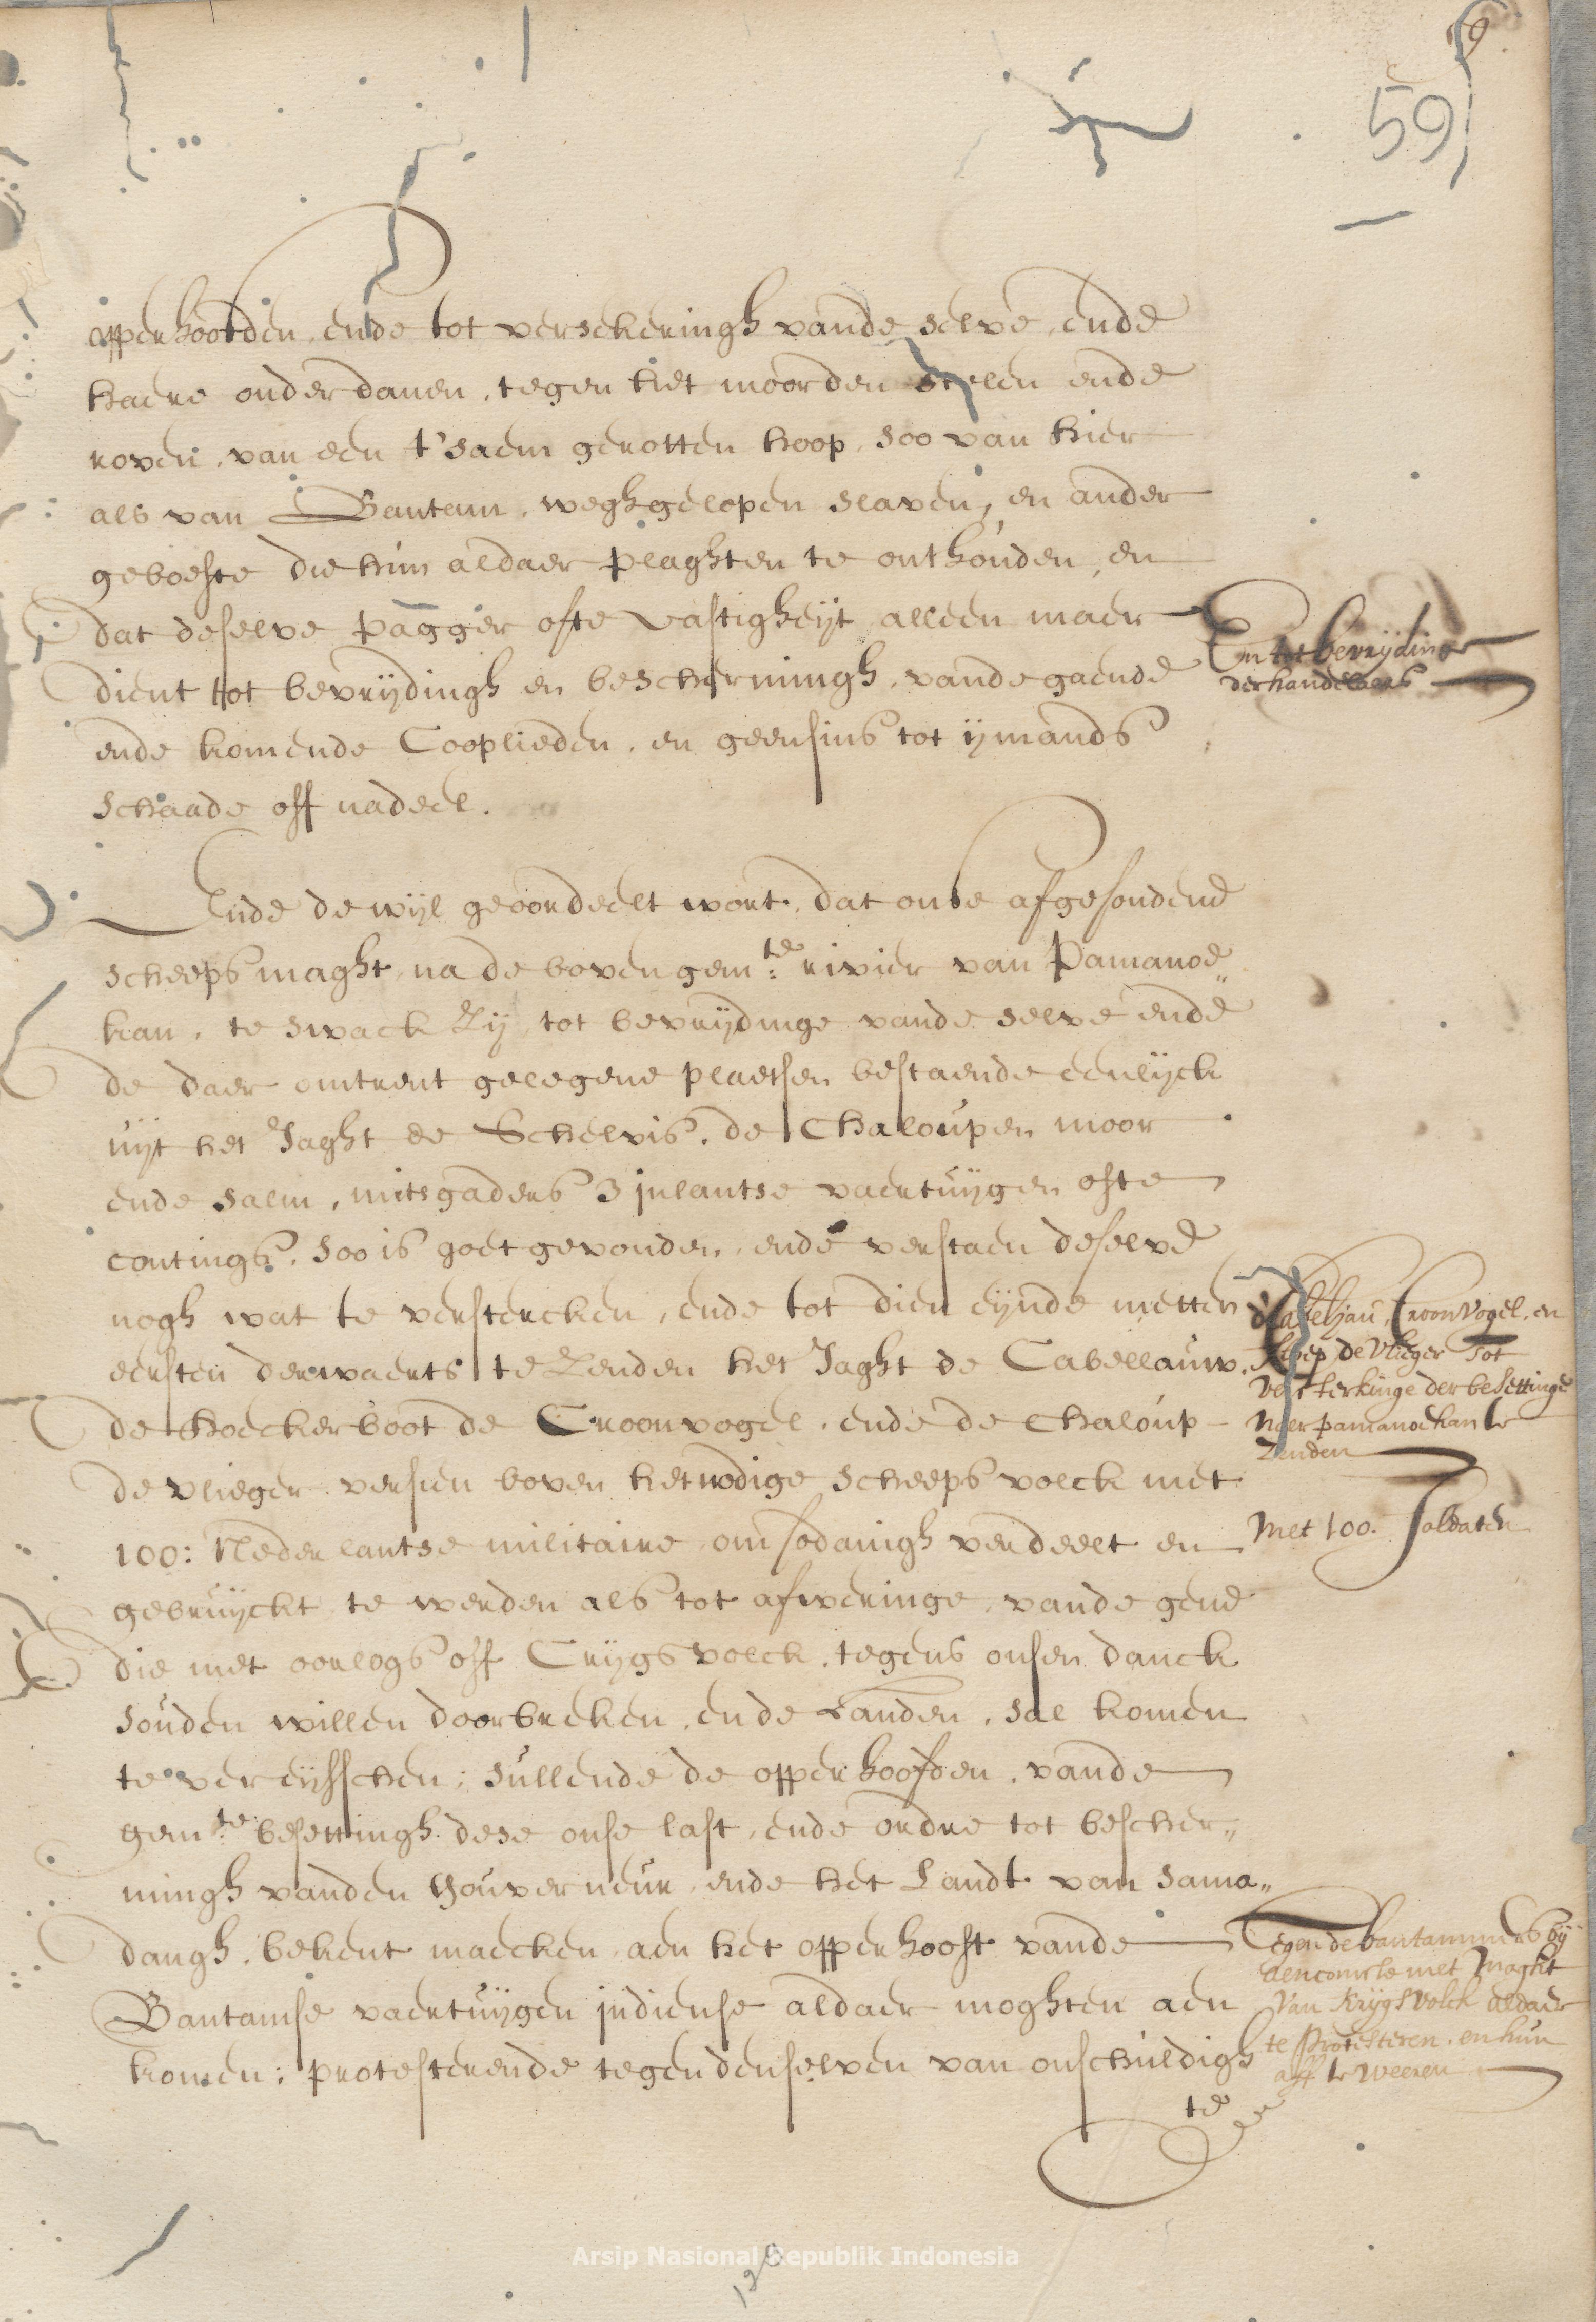 59
opperhoofden, ende tot versekeringh vande selve, ende
haere onderdanen, tegen het moorden stelen ende
roven, van een t'saem gerotten hoop, soo van hier
als van Bantam, weghgelopen slaven, en ander
geboefte die hun aldaer plaghten te onthouden, en
dat deselve pagger ofte vastigheijt alleen maer
dient tot bevrijdingh en beschermingh, vande gaende
ende komende Cooplieden, en geensins tot ijmands
schaade off nadeel.
En tot bevrijding
der handelaers
Ende dewijl geoordeelt wort, dat onse afgesondene
scheepsmaght, na de bovengem:te rivier van Pamanoe„
kan, te swack zij, tot bevrijdinge vande selve ende
de daer omtrent gelegene plaetsen bestaende eenlijck
uijt het Jaght de Schelvis, de Chaloupen moor
ende salm, mitsgaders 3 inlantse vaertuijgen ofte
contings, soo is goet gevonden, ende verstaen deselve
nogh wat te verstercken, ende tot dien eijnde metten
eersten derwaerts te zenden het Jaght de Cabellauw,
de hoeckerboot de Croonvogel, ende de Chaloup
de vlieger versien boven het nodige scheepsvolck met
100: Nederlantse militaire, om sodanigh verdeelt en
gebruijckt te werden als tot afweringe, vande gene
die met oorlogs off Crijgsvolck, tegens onsen danck
souden willen doorbreken, ende Landen, sal komen
te vereijsschen; sullende de opperhoofden, vande
gem:te besettingh dese onse last, ende ordre tot bescher„
mingh vanden Gouverneur, ende het Landt van Sama„
dangh, bekent maecken, aen het opperhooft vande
Bantamse vaertuijgen indiense aldaer moghten aen
komen; protesterende tegen denselven van onschuldigh
te
Cabeljau, Croonvogel, en
de vlieger Tot
versterkinge der besettinge
Naer pamanoekan te
Zenden
Met 100. Soldaten
Tegen de bantammers bij
aencomste met Maght
van Krijgsvolck aldaer
te Protesteren, en hun
aff te weeren
Arsip Nasional Republik Indonesia